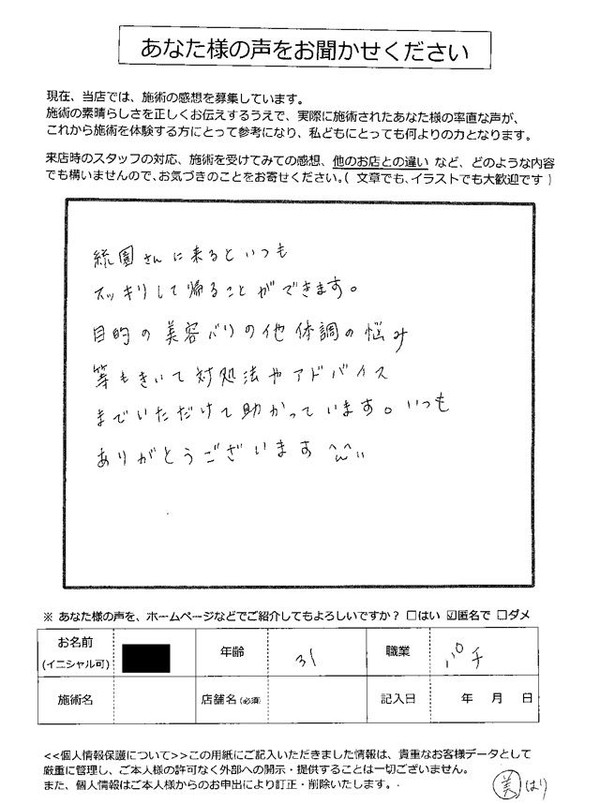 あなた様の声をお聞かせください
現在、当店では、施術の感想を募集しています。
施術の素晴らしさを正しくお伝えするうえで、実際に施術されたあなた様の率直な声が、
これから施術を体験する方にとって参考になり、私どもにとっても何よりの力となります。
来店時のスタッフの対応、施術を受けてみての感想、他のお店との違い など、どのような内容
でも構いませんので、お気づきのことをお寄せください。( 文章でも、イラストでも大歓迎です )
統園さんに来るといつも
スッキリして帰ることができます。
目的の美容バリの他体調の悩み
等もきいて対処法やアドバイス
までいただけて助かっています。いつも
ありがとうございます^^
※ あなた様の声を、ホームページなどでご紹介してもよろしいですか？ □はい ☑匿名で □ダメ
お名前 年齢 31 職業 パチ
(イニシャル可)
施術名 店舗名(必須) 記入日 年 月 日
<<個人情報保護について>>この用紙にご記入いただきました情報は、貴重なお客様データとして
厳重に管理し、ご本人様の許可なく外部への開示・提供することは一切ございません。
また、個人情報はご本人様からのお申出により訂正・削除いたします。
美はり